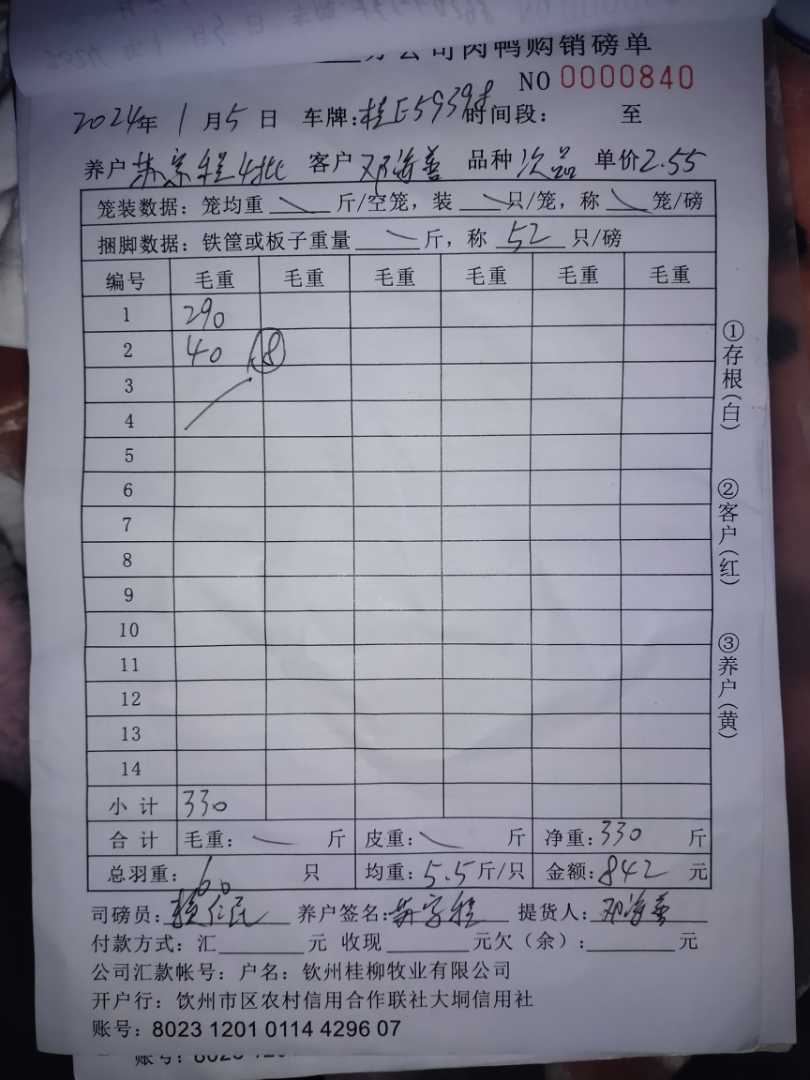 公司肉鸭购销磅单
NO 0000840
2024年 1月5日 车牌:桂E5939 时间段: 至
养户 4批 客户 邓海善 品种 次品 单价2.55
笼装数据: 笼均重 斤/空笼, 装 只/笼, 称 笼/磅
捆脚数据: 铁筐或板子重量 斤, 称 52 只/磅
编号 毛重 毛重 毛重 毛重 毛重 毛重
1 290
2 40 8
3
4
5
6
7
8
9
10
11
12
13
14
小计 330
合计 毛重: 斤 皮重: 斤 净重:330 斤
总羽重: 60 只 均重:5.5斤/只 金额:842 元
司磅员: 养户签名: 提货人: 邓海善
付款方式: 汇 元 收现 元欠(余): 元
公司汇款帐号: 户名: 钦州桂柳牧业有限公司
开户行: 饮州市区农村信用合作联社大垌信用社
账号: 8023 1201 0114 4296 07
①存根(白)
②客户(红)
③养户(黄)